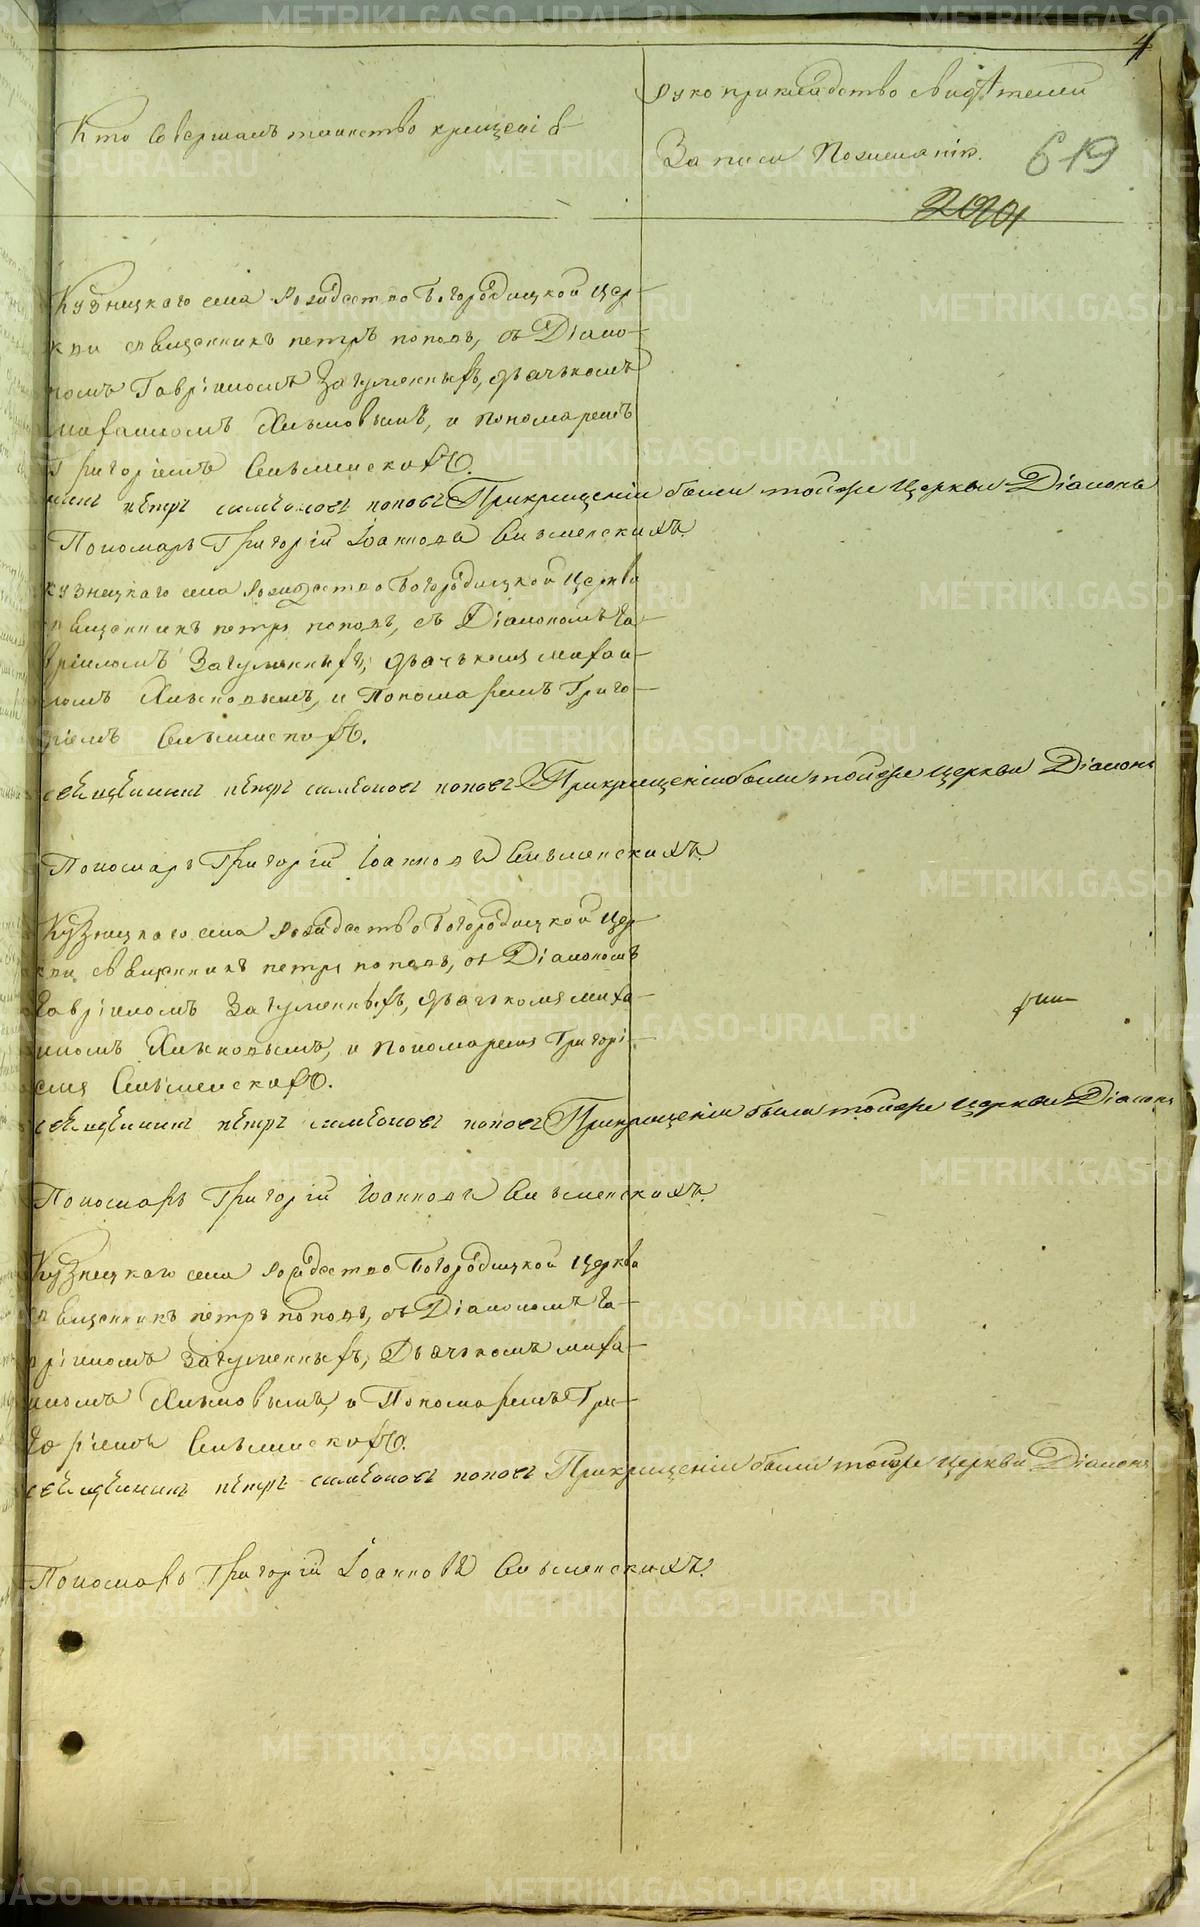 4
Кто совершалъ таинство крещенiя
Рукоприкладство свидѣтелей
записи по желанiю.
619
Кузнецкаго села Рождество Богородицкой цер-
кви священникъ петръ поповъ, съ Дiако-
номъ Гаврiиломъ Загуменныхъ, дьячькомъ
михаиломъ Хлыновымъ, и пономаремъ
Григорiемъ Сильменскихъ.
петръ симеоновъ поповъ При крещенiи были тойже Церкви Дiаконъ
Пономарь Григорiй Iоанновъ Сильменскихъ.
кузнецкаго села Рождество Богородицкой Церкви
священникъ петръ поповъ, съ Дiакономъ Га-
врiиломъ Загуменныхъ, дьячькомъ михаи-
ломъ Хлыновымъ, и Пономаремъ Григо-
рiемъ Сильменскихъ.
священникъ петръ симеоновъ поповъ При крещенiи были тойже церкви Дiаконъ
Пономарь Григорiй Iоанновъ Сильменскихъ.
Кузнецкаго села Рождество Богородицкой Цер-
кви священникъ петръ поповъ, съ Дiакономъ
Гаврiиломъ Загуменныхъ, дьячькомъ миха-
иломъ Хлыновымъ, и пономаремъ Григорi-
емъ Сильменскихъ.
священникъ петръ симеоновъ поповъ При крещенiи были тойже церкви Дiаконъ
Пономарь Григорiй Iоанновъ Сильменскихъ.
Кузнецкаго села Рождество Богородицкой Церкви
священникъ петръ поповъ, съ Дiакономъ Га-
врiиломъ Загуменныхъ, Дьячькомъ миха-
иломъ Хлыновымъ, и Пономаремъ Гри-
горiемъ Сильменскихъ.
священникъ петръ симеоновъ поповъ При крещенiи были тойже церкви Дiаконъ
Пономарь Григорiй Iоанновъ Сильменскихъ.